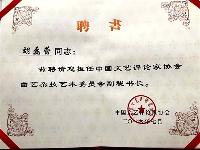 聘书
同志：
兹聘请您担任中国文艺评论家协会
曲艺杂技艺术委员会副秘书长。
中国文艺评论家协会